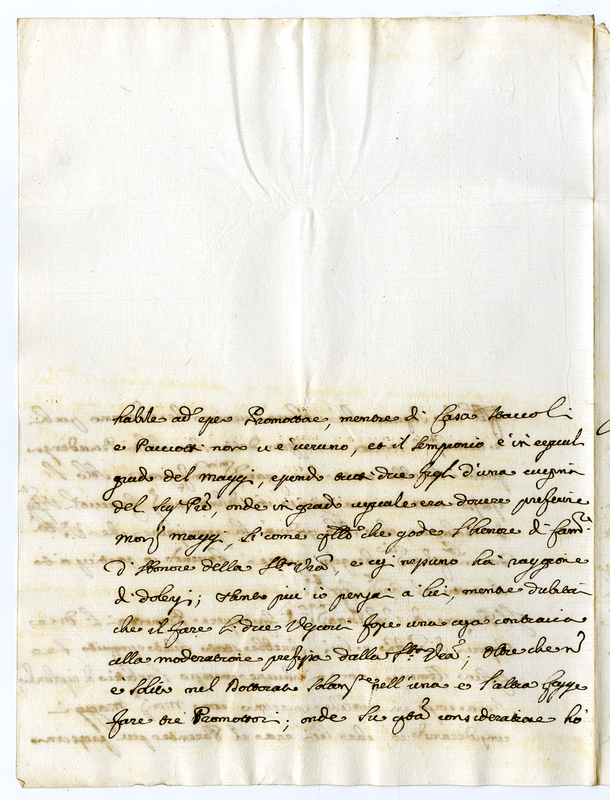 habile ad esser Promottore, mentre di Casa Staccoli
e Paciotti non v'è veruno, et il Sempronio è in egual
grado del Maggi, essendo tutti due figli d'una cugina
del Sigr Pre, onde in grado uguale era dovere preferire
Monsr Maggi, si come quello che gode l'honore di famre
d'honore della Sta Vra, e così nessuno hà raggione
di dolersi; tanto più io pensai a lui, mentre dubitai
che il fare li due Vescovi fosse una cosa contraria
alla moderatione prefissa dalla Sta Vra, oltre che nò
è solito nel Dottorato nell'una e l'altra legge
fare tre Promottori; onde su questa consideratione hò